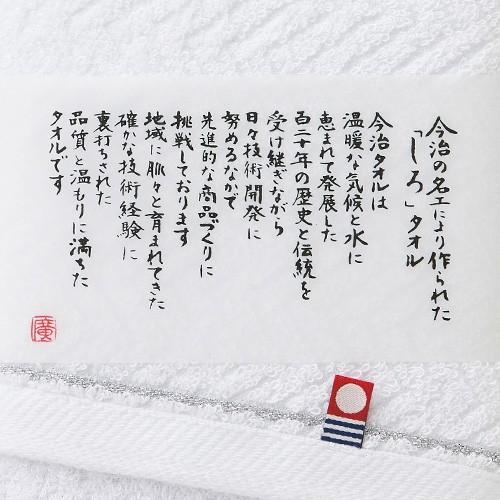 今治の名工により作られた
「しろ」タオル
今治タオルは
温暖な気候と水に
恵まれて発展した
百二十年の歴史と伝統を
受け継ぎながら
日々技術開発に
努めるなかで
先進的な商品づくりに
挑戦しております
地域に脈々と育まれてきた
確かな技術経験に
裏打ちされた
品質と温もりに満ちた
タオルです
廣